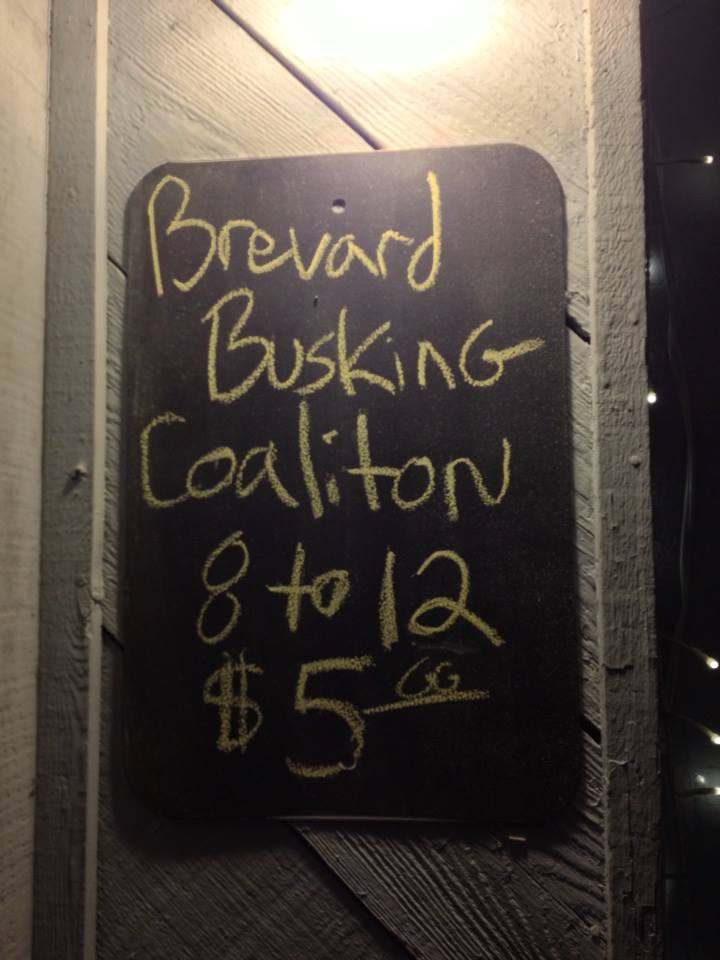 Brevard
Busking
Coaliton
8 to 12
$5 00